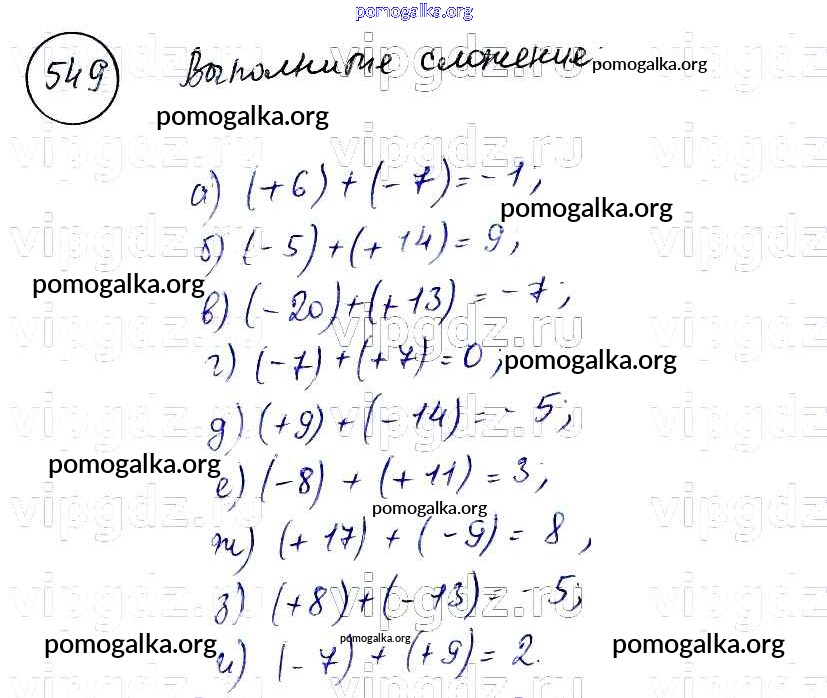 pomogalka.org
549 Выполните сложение pomogalka.org
pomogalka.org vipgdz.ru vipgdz.ru
а) (+6) + (-7) = -1;
pomogalka.org
б) (-5) + (+14) = 9;
pomogalka.org
в) (-20) + (+13) = -7;
vipgdz.ru vipgdz.ru
г) (-7) + (+7) = 0; pomogalka.org
д) (+9) + (-14) = -5;
vipgdz.ru vipgdz.ru
pomogalka.org
е) (-8) + (+11) = 3;
pomogalka.org
vipgdz.ru vipgdz.ru
ж) (+17) + (-9) = 8,
з) (+8) + (-13) = -5;
vipgdz.ru vipgdz.ru
pomogalka.org pomogalka.org pomogalka.org
и) (-7) + (+9) = 2.